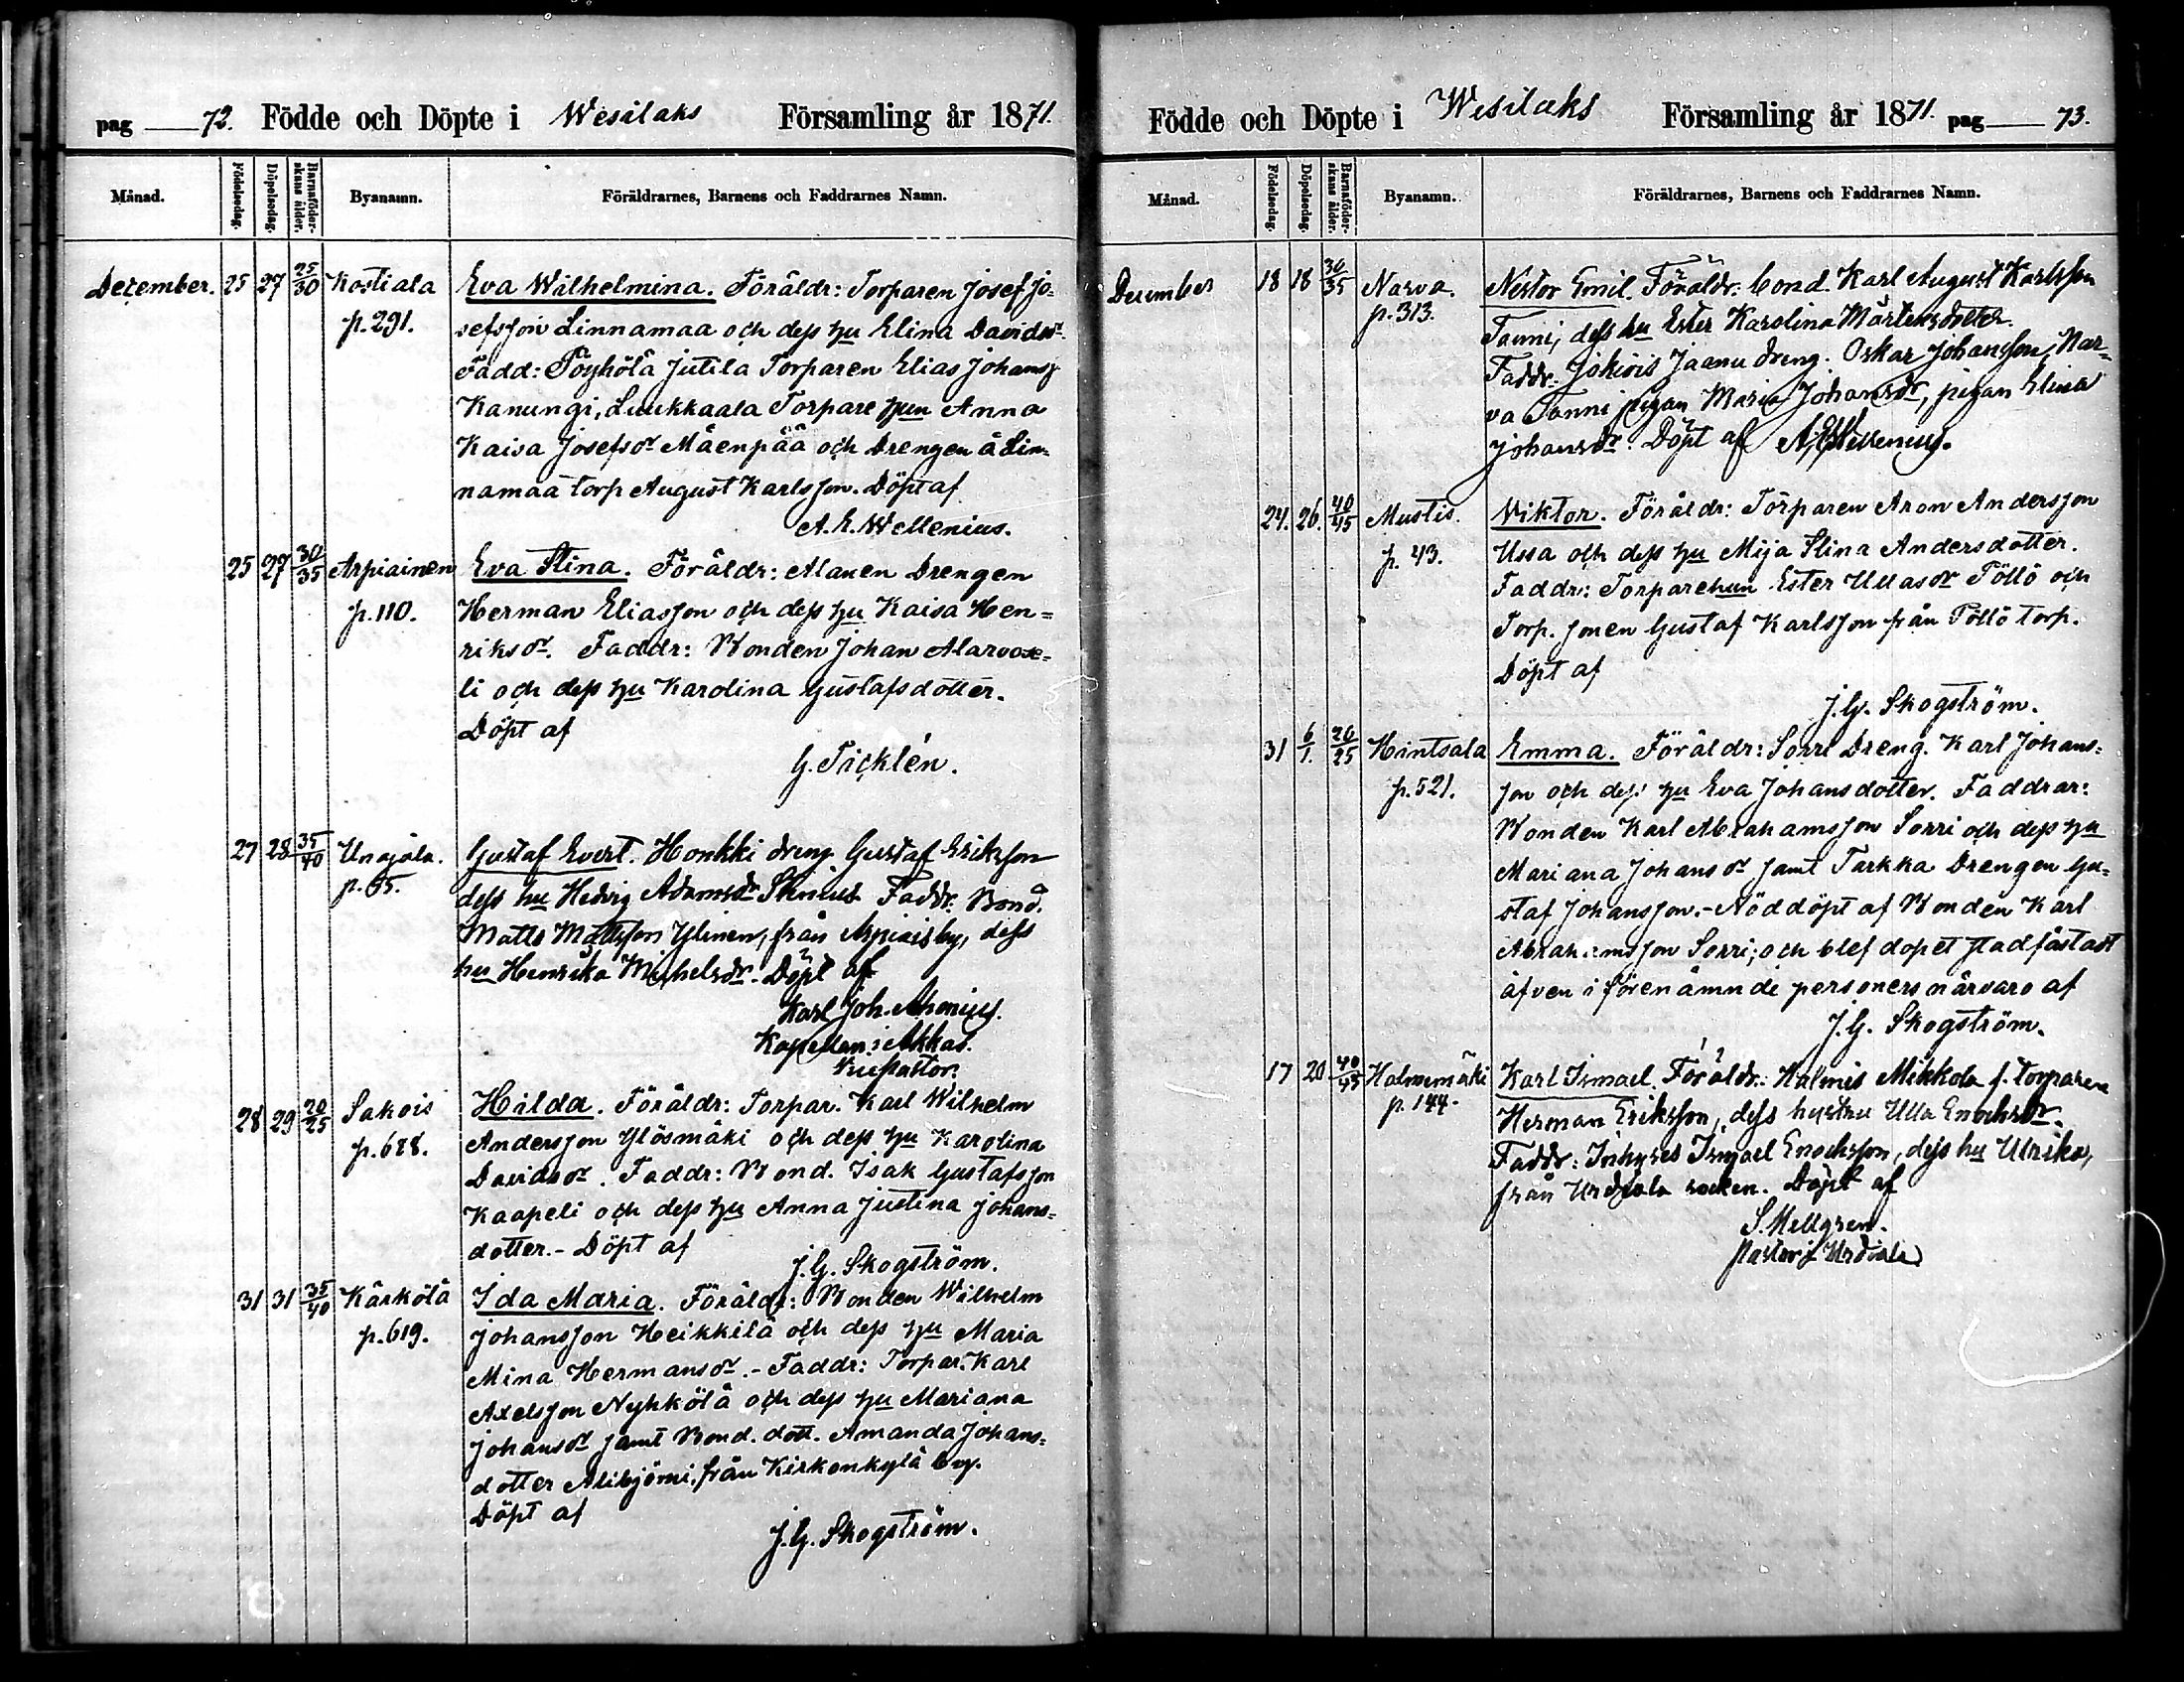 pag 72. Födde och Döpte i Wesilaks Församling år 1871.
Månad. Födelsedag. Döpelsedag. Barnaföderskans ålder. Byanamn. Föräldrarnes, Barnens och Faddrarnes Namn.
December. 25 27 25/30 Kostiala Eva Wilhelmina. Föräldr: Torparen Josef Jo=
p. 291. sefsson Linnamaa och dess hu Elina Davidsdr.
Fadd: Töyhölä Jutila Torparen Elias Johanss
Kanungi, Luukkaala Torpare hun Anna
Kaisa Josefsdr Mäenpää och Drengen å Lin=
namaa torp August Karlsson. Döpt af
A. E. Wellenius.
25 27 30/35 Arpiainen Eva Stina. Föräldr: Alanen Drengen
p. 110. Herman Eliasson och dess hu Kaisa Hen=
riksdr. Faddr: Bonden Johan Alarvose=
li och dess hu Karolina Gustafsdotter.
Döpt af
G. Ticklén.
27 28 35/40 Unajala. Gustaf Evert. Honkki dreng Gustaf Eriksson
p. 65. dess hu Hedvig Adamsdr Stenius Faddr. Bond.
Matts Mattsson Ylinen, från Arpiais by, dess
hu Henrika Michelsdr. Döpt af
Karl Joh. Ahonius.
Kapellan i Akkas.
Vicepastor.
28 29 20/25 Sakois Hilda. Föräldr: Torpar. Karl Wilhelm
p. 688. Andersson Ylösmäki och dess hu Karolina
Davidsdr. Faddr: Bond. Isak Gustafsson
Kaapeli och dess hu Anna Justina Johans=
dotter.- Döpt af
J. G. Skogström.
31 31 35/40 Kärkölä Ida Maria. Föräldr: Bonden Wilhelm
p. 619. Johansson Heikkilä och dess hu Maria
Mina Hermansdr.- Faddr: Torpar. Karl
Axelsson Nyhkölä och dess hu Mariana
Johansdr samt Bond. dott. Amanda Johans=
dotter Alikjörni, från Kirkonkylä by.
Döpt af
J. G. Skogström.
Födde och Döpte i Wesilaks Församling år 1871. pag 73.
Månad. Födelsedag. Döpelsedag. Barnaföderskans ålder. Byanamn. Föräldrarnes, Barnens och Faddrarnes Namn.
December 18 18 30/35 Narva. Nestor Emil. Föräldr. bond. Karl August Karlsson
p. 313. Tanni, dess hu Ester Karolina Mårtensdotter.
Faddr. Jokiois Jaanu dreng. Oskar Johansson, Nar=
va Tanni pigan Maria Johansdr, pigan Elina
Johansdr. Döpt af A. E. Wellenius.
24. 26. 40/45 Mustis. Viktor. Föräldr: Torparen Aron Andersson
p. 43. Ussa och dess hu Mija Stina Andersdotter.
Faddr: Torparehun Ester Ullasdr Töllö och
Torp. sonen Gustaf Karlsson från Töllö torp.
Döpt af
J. G. Skogström.
31 6/1. 20/25 Hintsala Emma. Föräldr: Sorri Dreng. Karl Johans=
p. 521. son och dess hu Eva Johansdotter. Faddrar:
Bonden Karl Abrahamsson Sorri och dess hu
Mariana Johansdr samt Tarkka Drengen Gu=
staf Johansson.- Nöddöpt af Bonden Karl
Abrahamsson Sorri; och blef dopet stadfästadt
äfven i förenämnde personers närvaro af
J. G. Skogström.
17 20 40/45 Halmemäki Karl Ismael. Föräldr: Halmis Mikkola f. torparen
p. 144. Herman Eriksson, dess hustru Ulla Enochsdr.
Faddr: Inhyses Ismael Enochsson, dess hu Ulrika,
från Urdiala socken. Döpt af
S. Mellgren.
Pastor i Urdiala